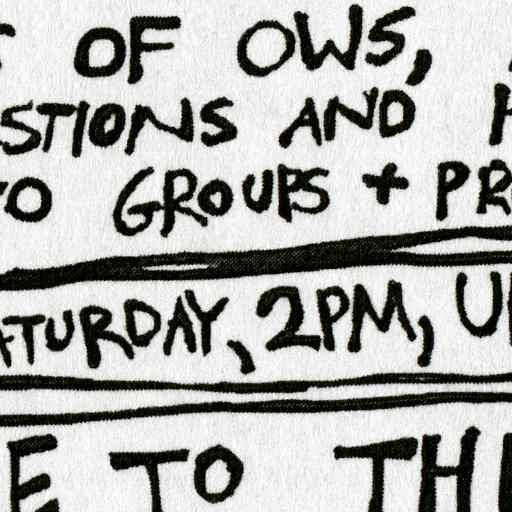 OF OWS,
STIONS AND H
TO GROUPS + PR
ATURDAY, 2PM, U
E TO TH